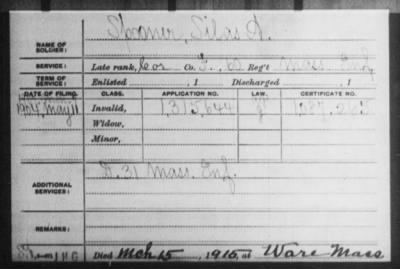 NAME OF SOLDIER: Spooner, Silas A.
SERVICE: Late rank, Cor Co. , 62 Reg't Mass. Inf.
TERM OF SERVICE: Enlisted , 1 Discharged , 1
DATE OF FILING. CLASS. APPLICATION NO. LAW. CERTIFICATE NO.
1904, May 11 Invalid, 1,315,644 1,087,265
Widow,
Minor,
ADDITIONAL SERVICES: D. 31 Mass. Inf.
REMARKS:
Died Mch 15, 1915, at Ware Mass